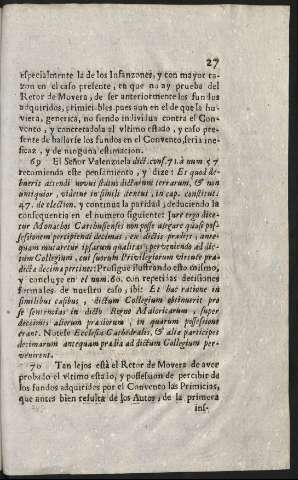 27
especialmente la de los Infanzones, y con mayor ra-
zon en el caso presente, en que no ay prueba del
Retor de Movera, de ser anteriormente los fundos
adquiridos, primiciables, pues aun en el de que la hu-
viera, generica, no siendo individua contra el Con-
vento, y concretandola al vltimo estado, y caso pre-
sente de hallarse los fundos en el Convento, seria ine-
ficaz, y de ninguna estimacion.
69 El Señor Valenzuela dict. conf. 71. à num. 57
recomienda este pensamiento, y dize: Et quod de-
bueris attendi novus status dictarum terrarum, & non
antiquior, videtur in simili textus, in cap. constitut.
47. de election. y continua la paridad, deduciendo la
consequencia en el numero siguiente: Jure ergo dice-
tur Monachos Carthusienses non posse allegare quasi pos-
sessionem percipiendi decimas, ex dictis prædijs, ante-
quam mutaretur ipsarum qualitas, perveniendo ad dic-
tum Collegium, cui suorum Privilegiorum virtute præ-
dicta decima pertinet: Prosigue ilustrando esto mismo,
y concluye en el num. 60. con repetidas decisiones
formales de nuestro caso; ibi: Et hac ratione in
similibus casibus, dictum Collegium obtinuerit pro
se sententias in dicto Regno Maioricarum, super
decimis aliorum prædiorum, in quorum possessione
erant Nostræ Ecclesiæ Cathedrales, & aliæ participes
decimarum antequam prædia ad dictum Collegium per-
venerent.
70 Tan lejos està el Retor de Movera de aver
probado el vltimo estado, y possession de percibir de
los fundos adquiridos por el Convento las Primicias,
que antes bien resulta de los Autos, de la primera
ins-